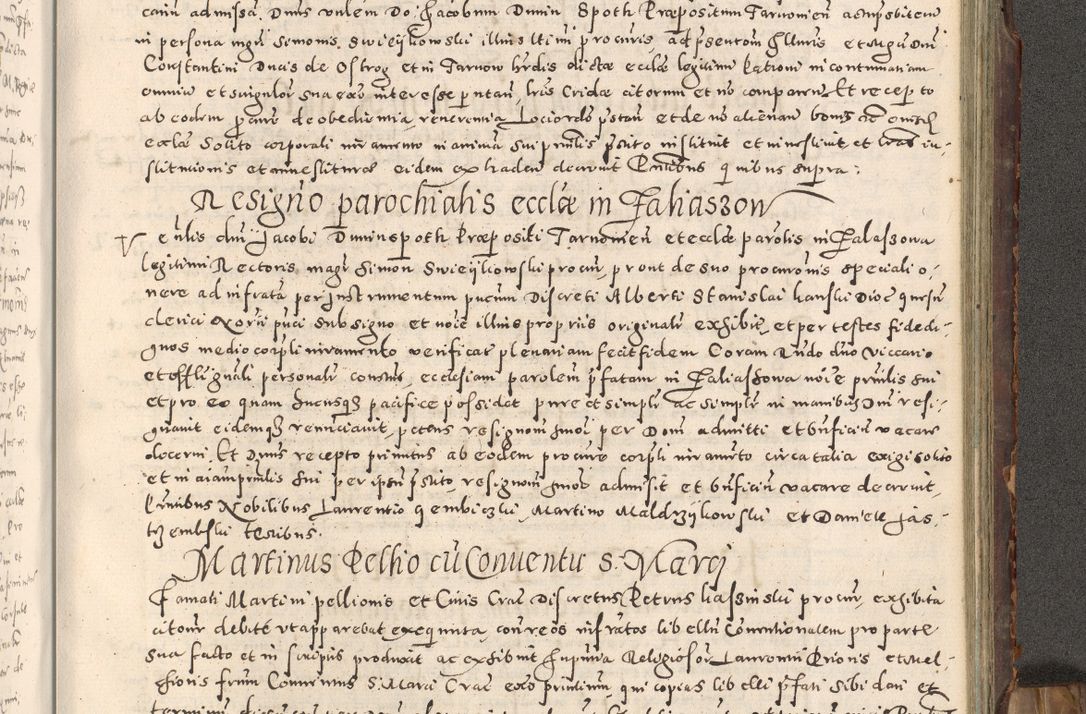 caiu admissa. Dnus vnlem Do. Jacobum Dunin Spoth Præpositum Tarnovien astipsbitem
in persona mgri Simonis Swieykowski illius ltimi procuris, ad psentom Illuris et Mgn Dni
Constantini Ducis de Ostrog et in Tarnow hrdis dictæ eccłæ legitimi Patroni in contumatiam
omniu et singulor sua exo interesse putan, lris Cridæ citorum et no comparen Et recepto
ab eodem procure de obedientia, reverentia Lociordo pstan et de no alienan bonis
ecclæ solito corporali iuramento in animam sui pnilis pstito instituit et investivit et lras in-
stitutionis et investituræ eidem extraden decrevit Pntibus quibus supra:
Resignō parochialis ecclæ in Faliaszow
Venlis dni Jacobi Dunin Spoth Præpositi Tarnovien et ecclæ parolis in Falaszowa
legitimi Rectoris magr Simon Swieykowski procur, pront de suo procurōnis speciali o-
nere ad infrata per Instrumentum pucum Discreti Alberti Stanislai hanski Dioc
clerici exorti puci sub signo et noie illius propriis originali exhibit, et per testes fidedi-
gnos medio corpli iuramento verificat plenariam fecit fidem Coram Rndo dno Viccario
et offli gnali personali constus, ecclesiam parolem pfatam in Faliaszowa noie pnilis sui
et pro ex quam hucusq pacifice possidet pure et simplr ac simplr in manibus Dni resi-
gnavit eidemq renuciavit, petens resignom hmoi per Dom admitti et bnficiu vacare
decerni. Et Dnus recepto primitus ab eodem procure corpli iuramto circa talia exigi solito
et in aiam pnilis sui per ipsu pstito, resignom hmoi admisit et bnficiu vacare decrevit,
Pntibus Nobilibus Laurentio Gembiczki, Martino Maldrzykowski et Daniele Jas-
trzembski testibus.
Martinus Pellio cū Conventu S. Marci
Famati Martini pellionis et Civis Crac Discretus Petrus liassinski procur, exhibita
citour debite vt apparebat exequuta, con reos infratos libellu Conventionalem pro parte
sua facto et in scriptis produxit ac exhibuit Jnpntia Religiosor Laurentii Prioris et Mel-
chioris frum Conventus S. Marci Crac exo pntium, qui copias libelli pfati sibi dari et